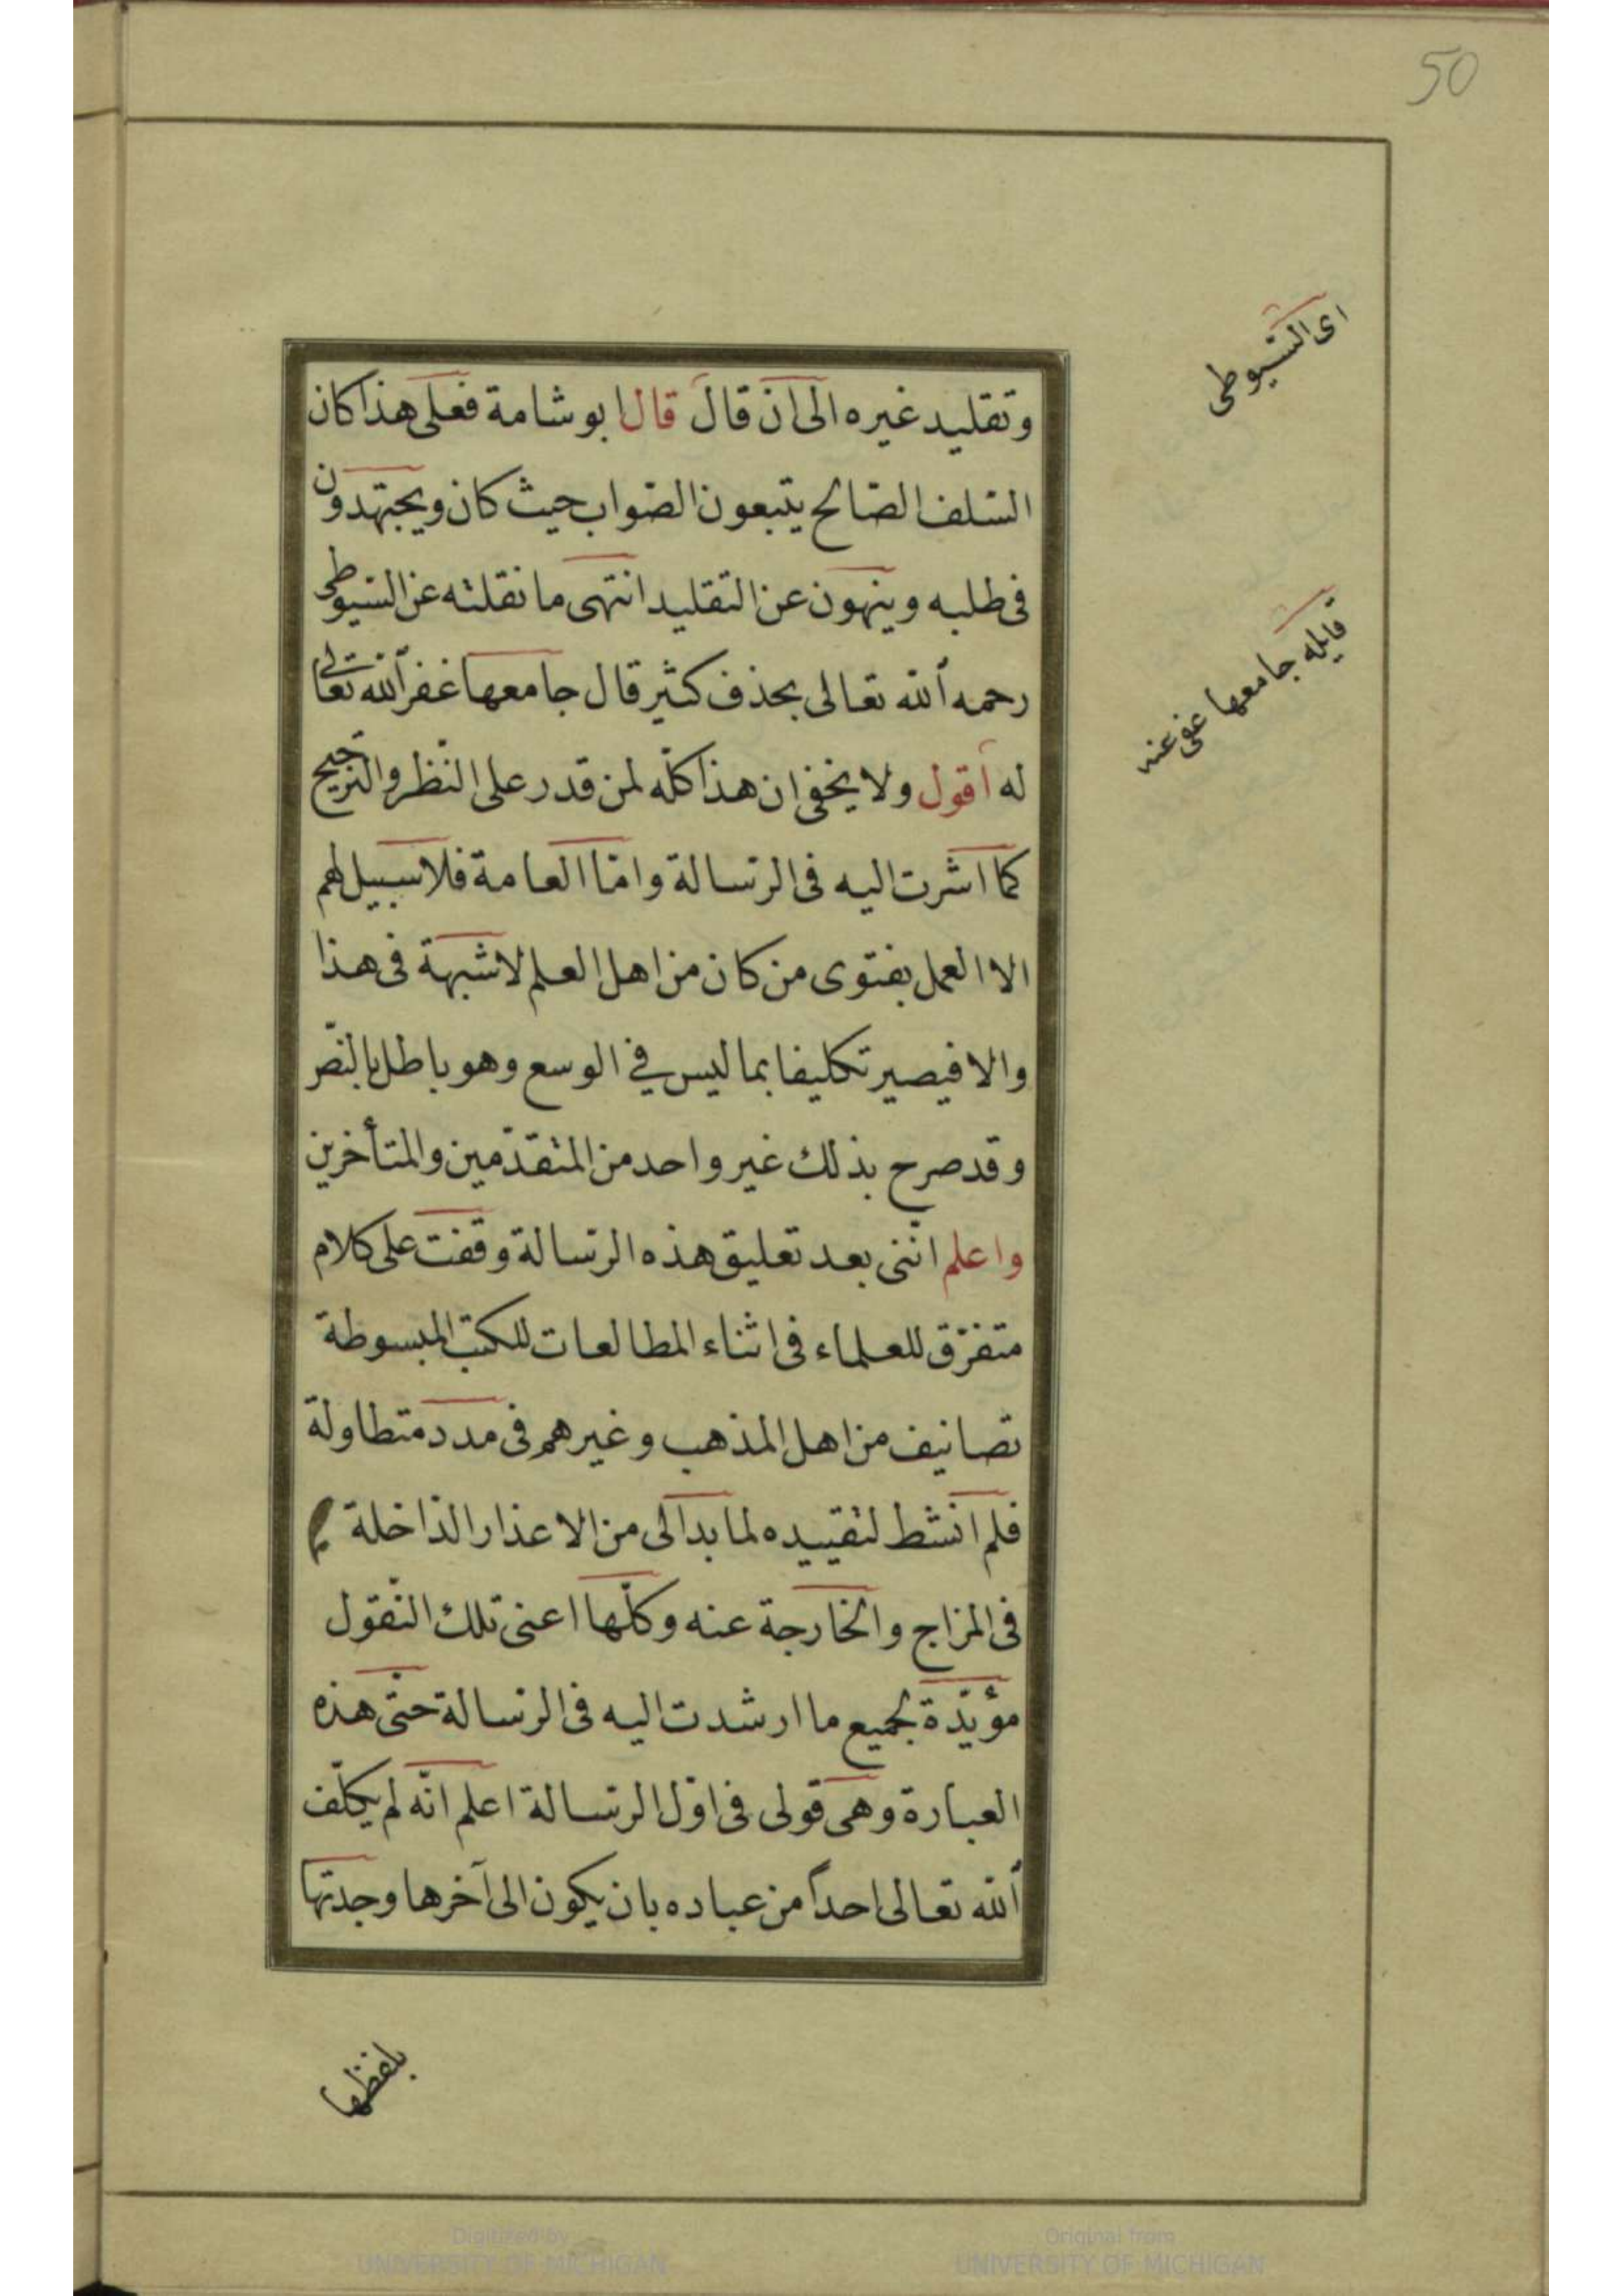 50
اى السّيوطى
وتقليد غيره الى ان قال قال ابو شامة فعلى هذا كان
السّلف الصّالح يتبعون الصّواب حيث كان ويجتهدون
فى طلبه وينهون عن التقليد انتهى ما نقلته عن السّيوطى
رحمه ألله تعالى بحذف كثير قال جامعها غفر ألله تعالى
قايله جامعها عفى عنه
له اقول ولا يخفى ان هذا كلّه لمن قدر على النّظر والترجيح
كما اشرت اليه فى الرّسالة وامّا العامة فلا سبيل لهم
الا العمل بفتوى من كان من اهل العلم لا شبهة فى هذا
والا فيصير تكليفا بما ليس في الوسع وهو باطل بالنّصّ
وقد صرح بذلك غير واحد من المتقدّمين والمتأخرين
واعلم انّنى بعد تعليق هذه الرّسالة وقفت على كلام
متفرّق للعلماء فى اثناء المطالعات للكتب المبسوطة
تصانيف من اهل المذهب وغيرهم فى مدد متطاولة
فلم انشط لتقييده لما بدا لى من الاعذار الدّاخلة
فى المزاج والخارجة عنه وكلّها اعنى تلك النّقول
مؤيّدة لجميع ما ارشدت اليه فى الرّسالة حتّى هذه
العبارة وهى قولى فى اوّل الرّسالة اعلم انّه لم يكلّف
ألله تعالى احداً من عباده بان يكون الى آخرها وجدتها
بلفظها
Digitized by
UNIVERSITY OF MICHIGAN
Original from
UNIVERSITY OF MICHIGAN